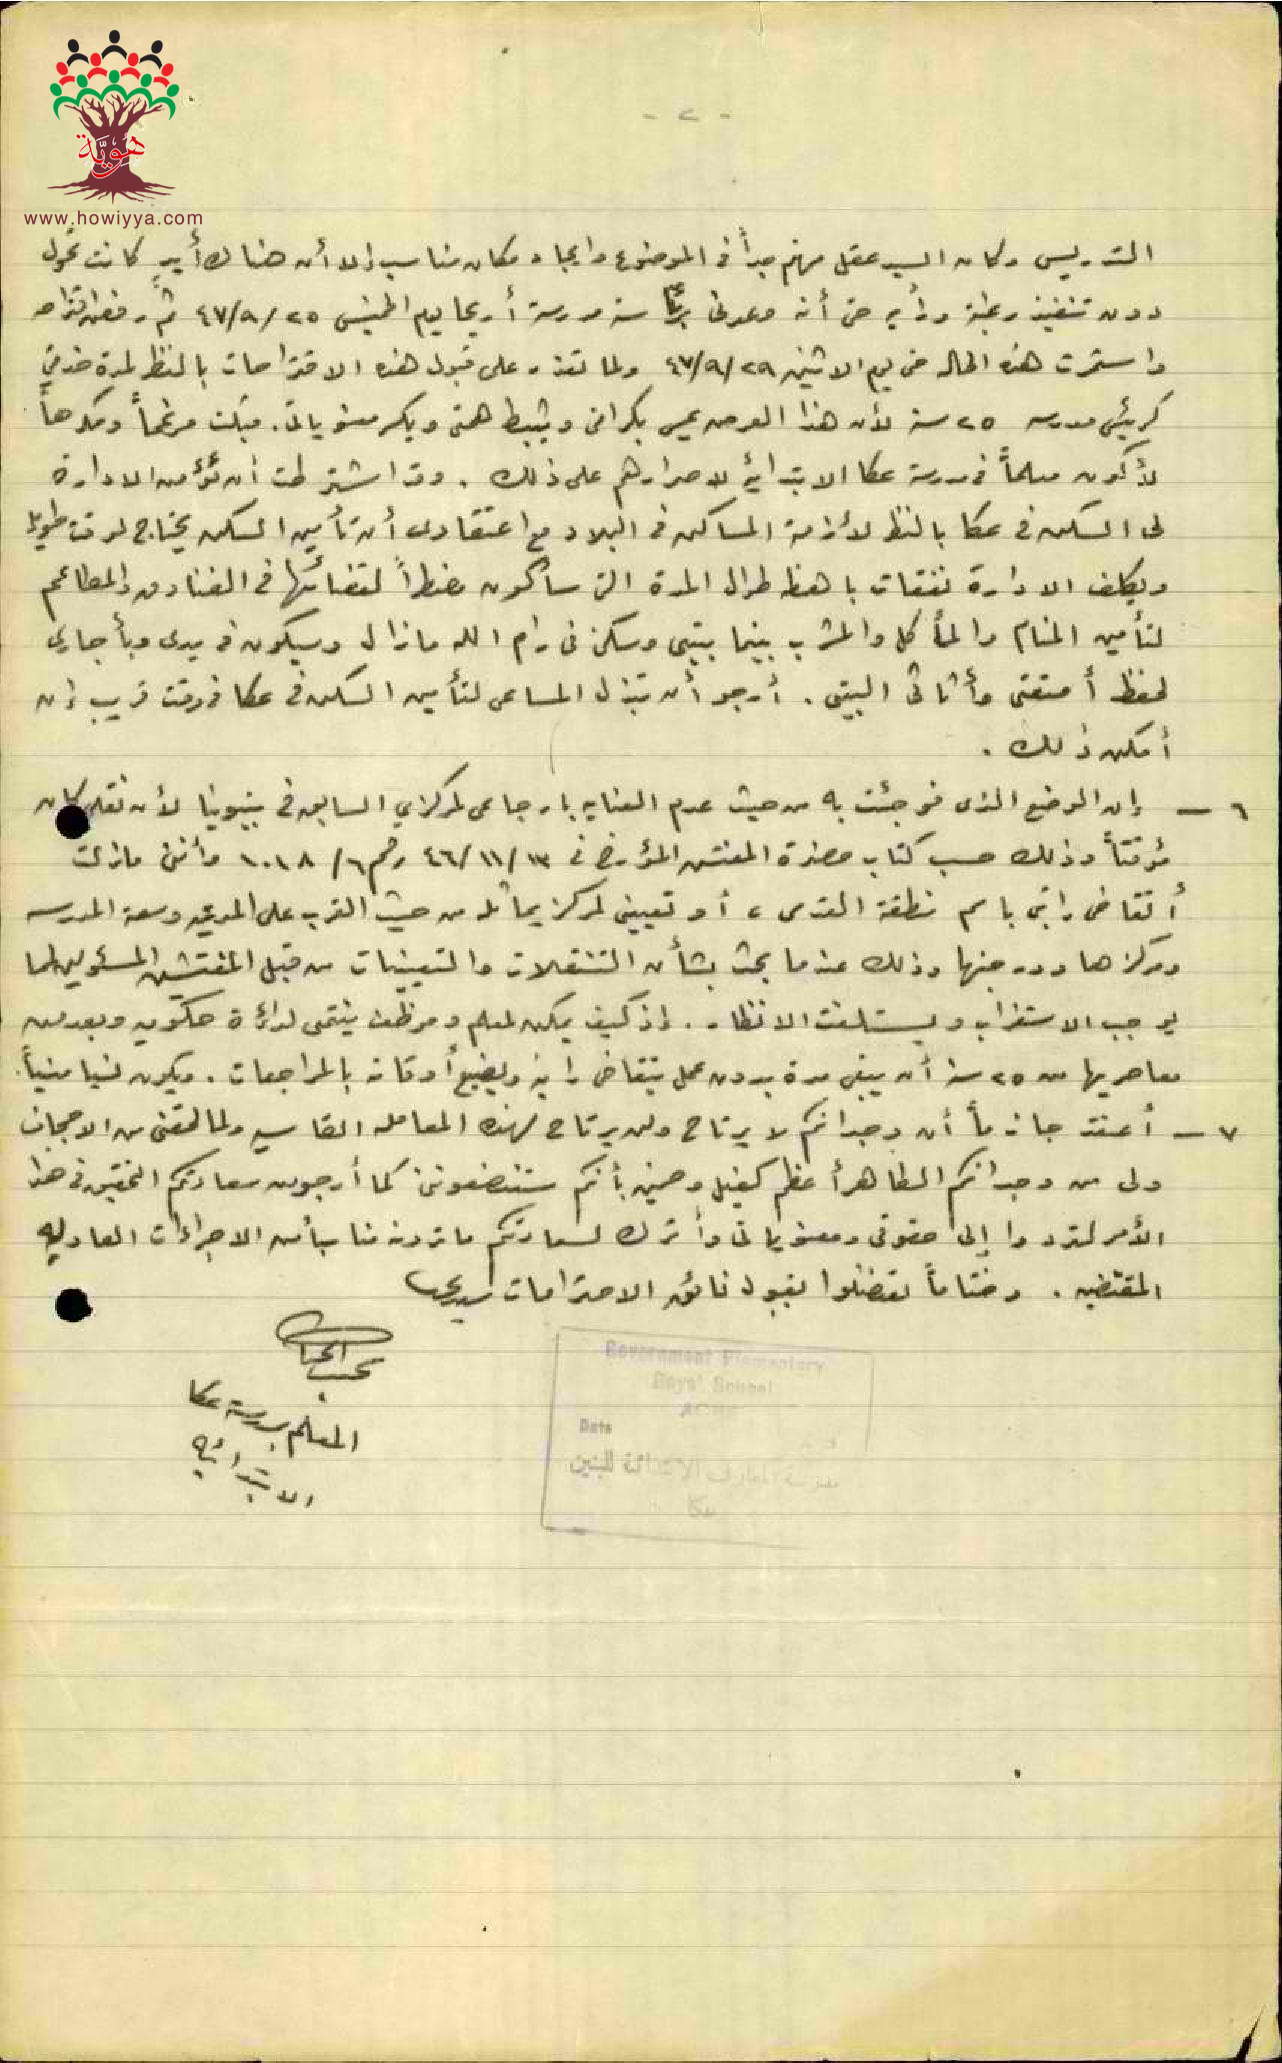 هويّة
www.howiyya.com
- ٢ -
التدريس وكان السيد عقل مهتم جداً في الموضوع وايجاد مكان مناسب إلا أن هناك أيدٍ كانت تحول
دون تنفيذ رغبته ورأيه حتى أنه وعدني برئاسة مدرسة أريحا يوم الخميس ٢٥/٩/٤٧ ثم رفض اقتراحه
واستمرت هذه الحاله حتى يوم الاثنين ٢٩/٩/٤٧ ولما تعذر على قبول هذه الاقتراحات بالنظر لمدة خدمتي
كرئيس مدرسه ٢٥ سنة لأن هذا العرض يمس بكرامتي ويثبط همتي ويكسر معنوياتي. قبلت مرغماً ومكرهاً
لأكون معلماً في مدرسة عكا الابتدائية لاصرارهم على ذلك . وقد اشترطت ان تؤمن الادارة
لي السكن في عكا بالنظر لأزمة المساكن في البلاد مع اعتقادي أن تأمين السكن يحتاج لوقت طويل
ويكلف الادارة نفقات باهظه طوال المدة التي سأكون مضطراً لقضائها في الفنادق والمطاعم
لتأمين المنام والمأكل والمشرب بينما بيتي وسكني في رام الله مازال وسيكون في يدي وبأجاري
لحفظ أمتعتي وأثاثي البيتي . أرجو أن تبذل المساعي لتأمين السكن في عكا في وقت قريب إن
أمكن ذلك .
٦ – إن الوضع الذي فوجئت به من حيث عدم العنايه بارجاعي لمركزي السابق في بيتونيا لأن نقلي كان
مؤقتاً وذلك حسب كتاب حضرة المفتش المؤرخ في ١٣/١١/٤٦ رقم ٦/١٠١٨ وأنني مازلت
أتقاضى راتبي باسم منطقة القدس ، أو تعييني لمركز يماثله من حيث القرب على المدينه وسعة المدرسه
ومركزها ودرجتها وذلك عندما بحث بشأن التنقلات والتعيينات من قبل المفتشين المسئولين لما
يوجب الاستغراب ويستلفت الانظار . إذ كيف يمكن لمعلم وموظف ينتمي لدائرة حكومية وبعد من
معاصريها من ٢٥ سنة أن يبقى مدة بدون عمل يتقاضى راتبه ويضيع أوقاته بالمراجعات . ويكون نسيا منسياً.
٧ – أعتقد جازماً أن وجدانكم لا يرتاح ولن يرتاح لهذه المعامله القاسيه ولما لحقني من الاجحاف
ولي من وجدانكم الطاهر أعظم كفيل وضمين بأنكم ستنصفونني كما أرجو من سعادتكم التحقيق في هذا
الأمر لتردوا إلى حقوقي ومعنوياتي وأترك لسعادتكم ما ترونه مناسباً من الاجراءات العادلة
المقتضيه . وختاماً تفضلوا بقبول فائق الاحترامات سيدي
المعلم بمدرسة عكا
الابتدائيه
Government Elementary
Boys' School
ACRE
Date
مدرسة المعارف الابتدائية للبنين
عكا